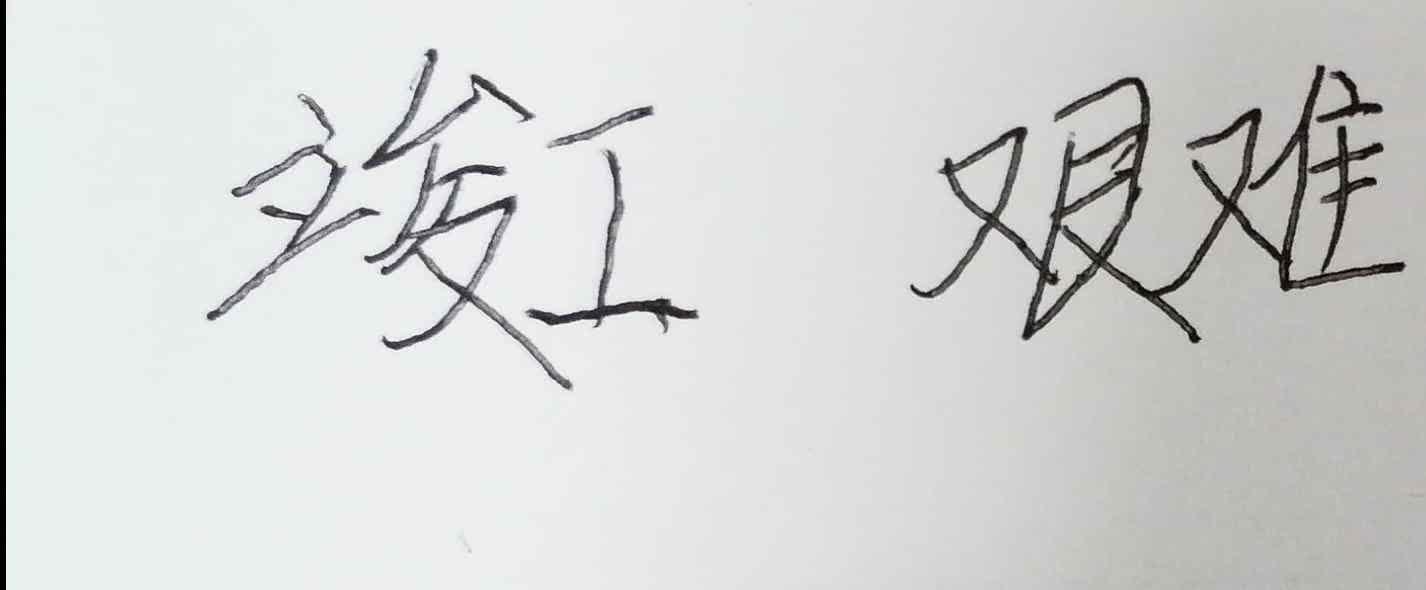 竣工 艰难